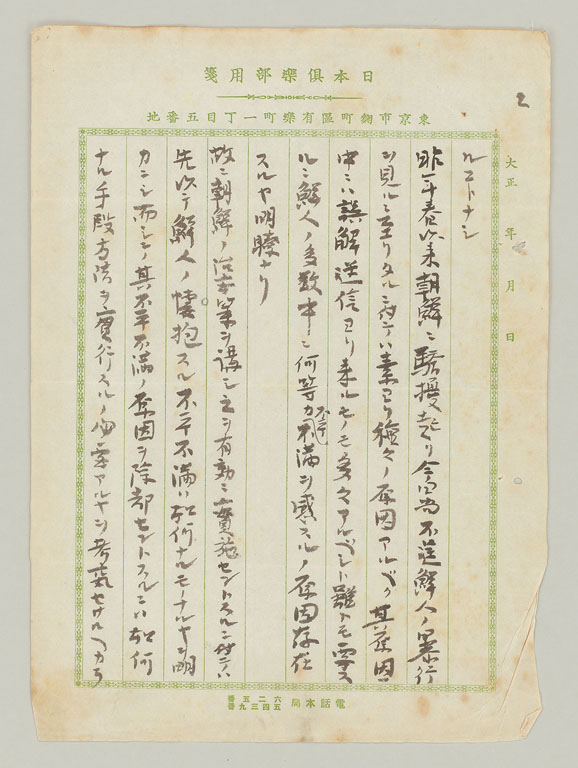 日本俱樂部用箋
東京市麴町區有樂町一丁目五番地
2
大正 年 月 日
ルコトナシ
昨年春以来朝鮮ニ騒擾起り今尚不逞鮮人ノ暴行
ヲ見ルニ至リタルニ付テハ素ヨリ種々ノ原因アルベク其蕉因
中ニハ誤解迷信ヨリ来ルモノモ多々アルベシト雖トモ要ス
ルニ鮮人ノ多数中ニ何等カ不平不満ヲ感スルノ原因存在
スルヤ明瞭ナリ
故ニ朝鮮ノ治安策ヲ講シ之ヲ有効ニ實施セントスルニ付テハ
先以テ鮮人ノ懐抱スル不平不満ハ如何ナルモノナルヤヲ明
カニシ而シテ其不平不満ノ原因ヲ除却セントスルニハ如何
ナル手段方法ヲ實行スルノ必要アルヤヲ考究セサルヘカラ
電話本局 六二五番 五四三九番